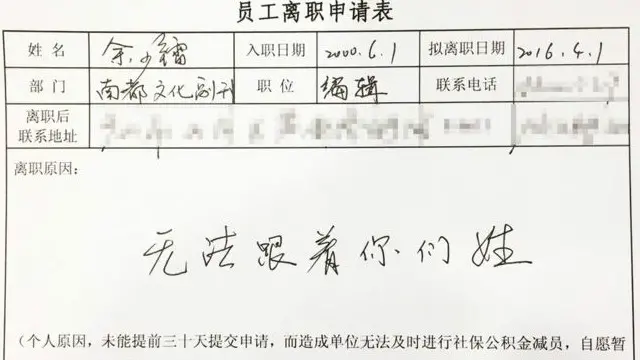 员工离职申请表
姓名 余少镭 入职日期 2000.6.1 拟离职日期 2016.4.1
部门 南都文化副刊 职位 编辑 联系电话
离职后
联系地址
离职原因:
无法跟着你们姓
(个人原因,未能提前三十天提交申请,而造成单位无法及时进行社保公积金减员,自愿暂